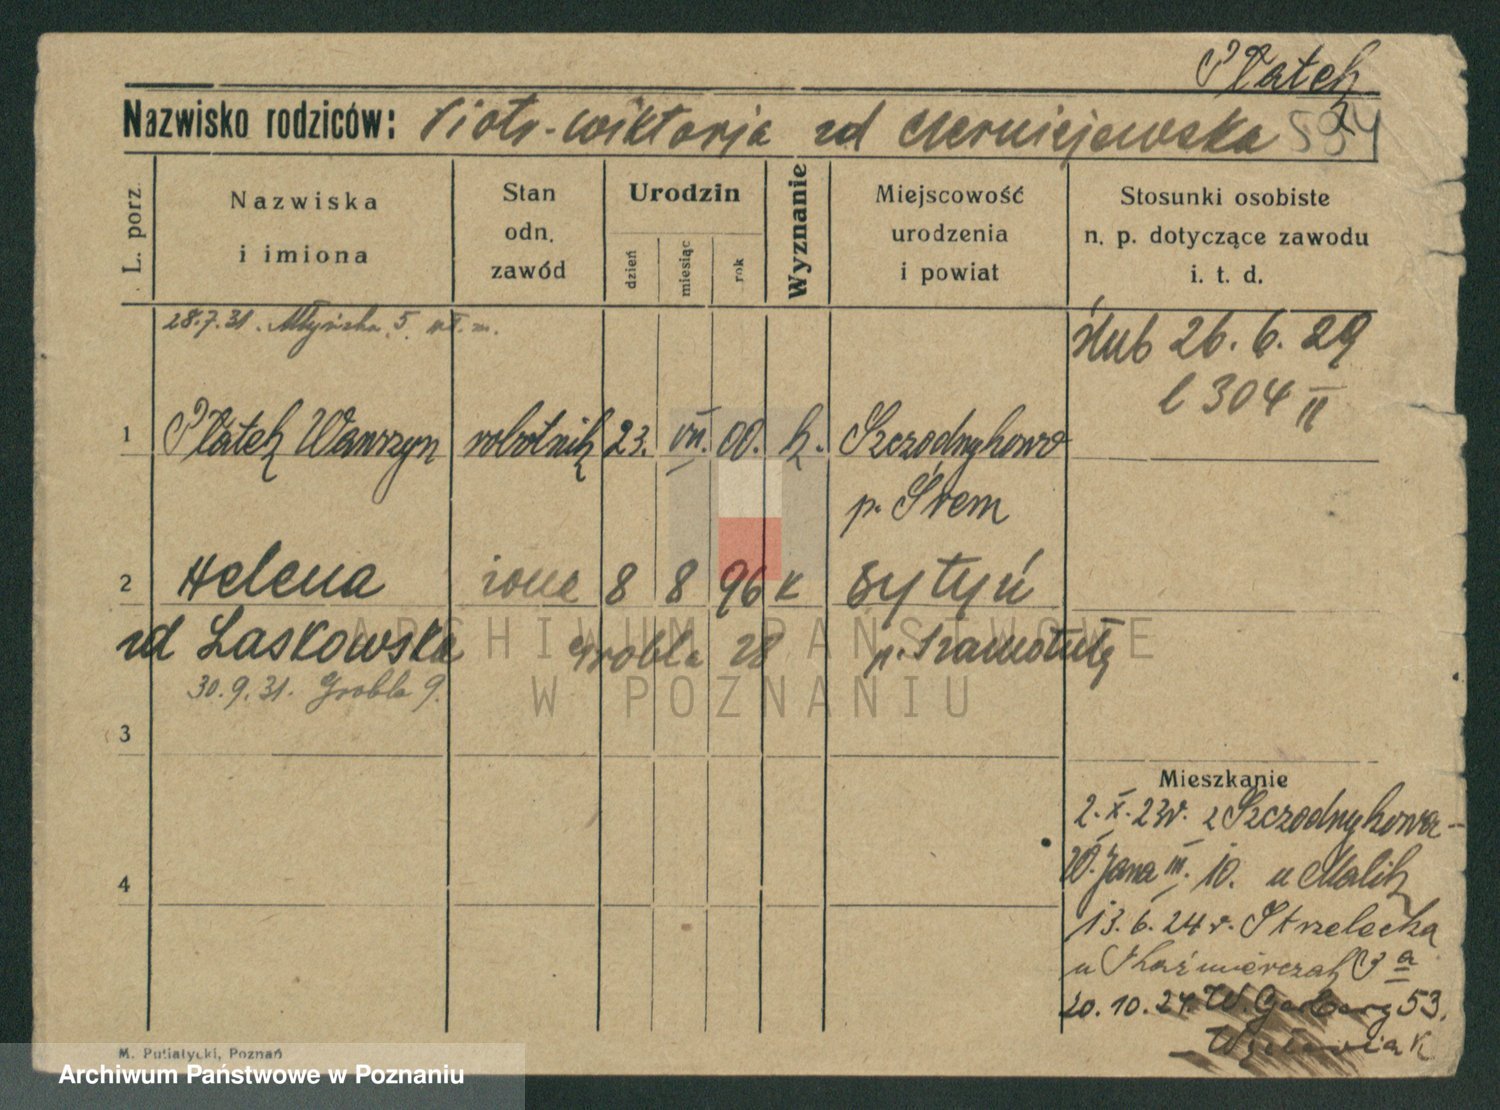 Płatek
Nazwisko rodziców: Piotr-Wiktorja zd Czerniejewska 594
L. porz.
Nazwiska i imiona
Stan odn. zawód
Urodzin
dzień
miesiąc
rok
Wyznanie
Miejscowość urodzenia i powiat
Stosunki osobiste n. p. dotyczące zawodu i. t. d.
28.7.31. Młyńska 5
ślub 26. 6. 29
l 304 II
1 Płatek Wawrzyn robotnik 23. VII. 00. k. Szczodrzykowo
p. Śrem
2 Helena żona 8 8 96 k Bytyń
zd Laskowska Grobla 28 p. Szamotuły
30.9.31. Grobla 9.
3
Mieszkanie
2. X. 23r. z Szczodrzykowa-
W. Jana III. 10. u Malik
4
13. 6. 24 r. Strzelecka
u Kaźmierczak 3 a
20. 10. 24. W. Garbary 53.
M. Putiatycki, Poznań
ARCHIWUM PAŃSTWOWE
W POZNANIU
Archiwum Państwowe w Poznaniu